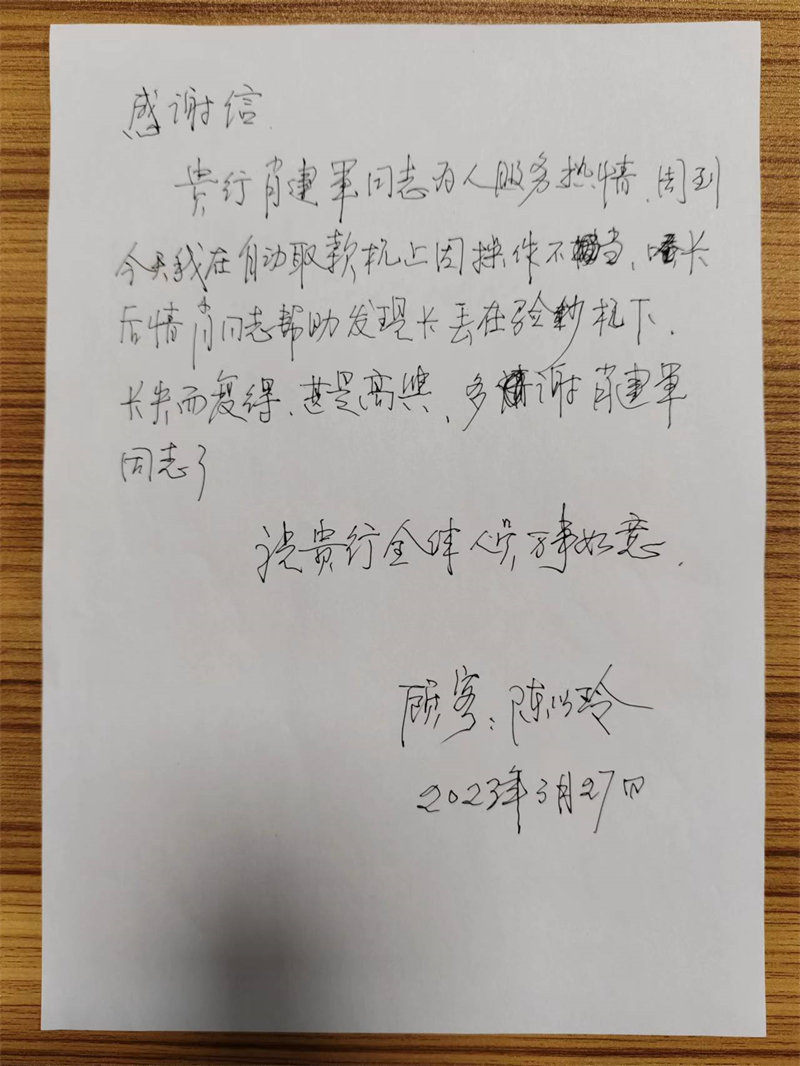 感谢信
贵行肖建军同志为人服务热情、周到
今天我在自动取款机上因操作不当、卡
后情肖同志帮助发现卡丢在验钞机下.
卡失而复得、甚是高兴、多谢肖建军
同志了
祝贵行全体人员万事如意.
顾客:陈以玲
2023年3月27日